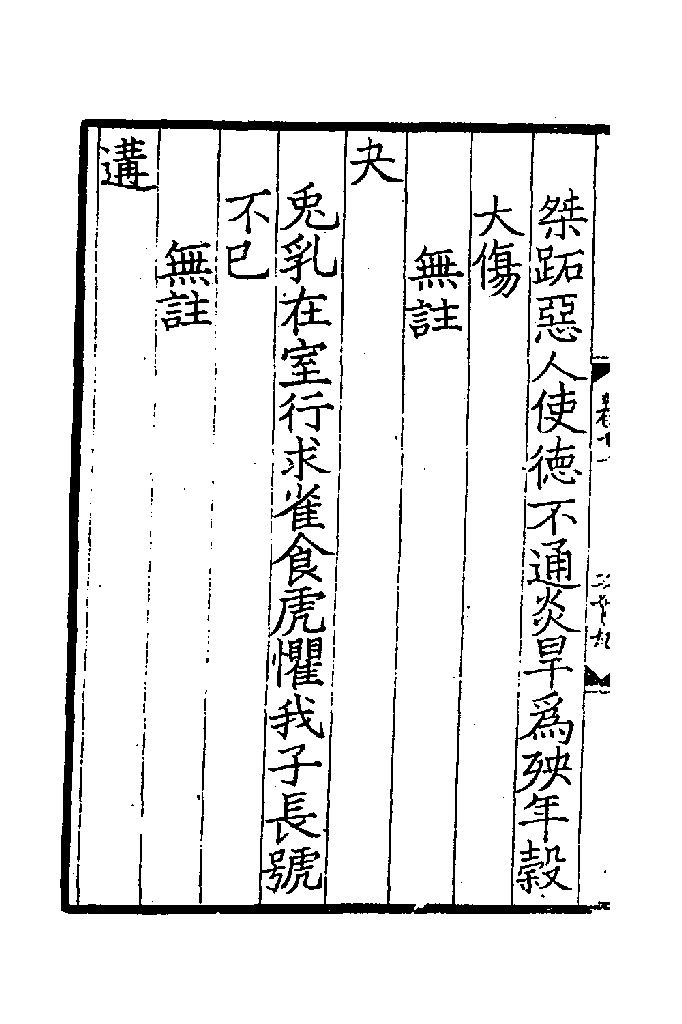 桀跖惡人使德不通炎旱爲殃年穀
大傷
無註
夬
兎乳在室行求雀食虎懼我子長號
不已
無註
遘